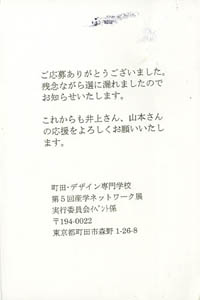 ご応募ありがとうございました。
残念ながら選に漏れましたので
お知らせいたします。
これからも井上さん、山本さん
の応援をよろしくお願いいたし
ます。
町田・デザイン専門学校
第5回産学ネットワーク展
実行委員会ｲﾍﾞﾝﾄ係
〒194-0022
東京都町田市森野 1-26-8